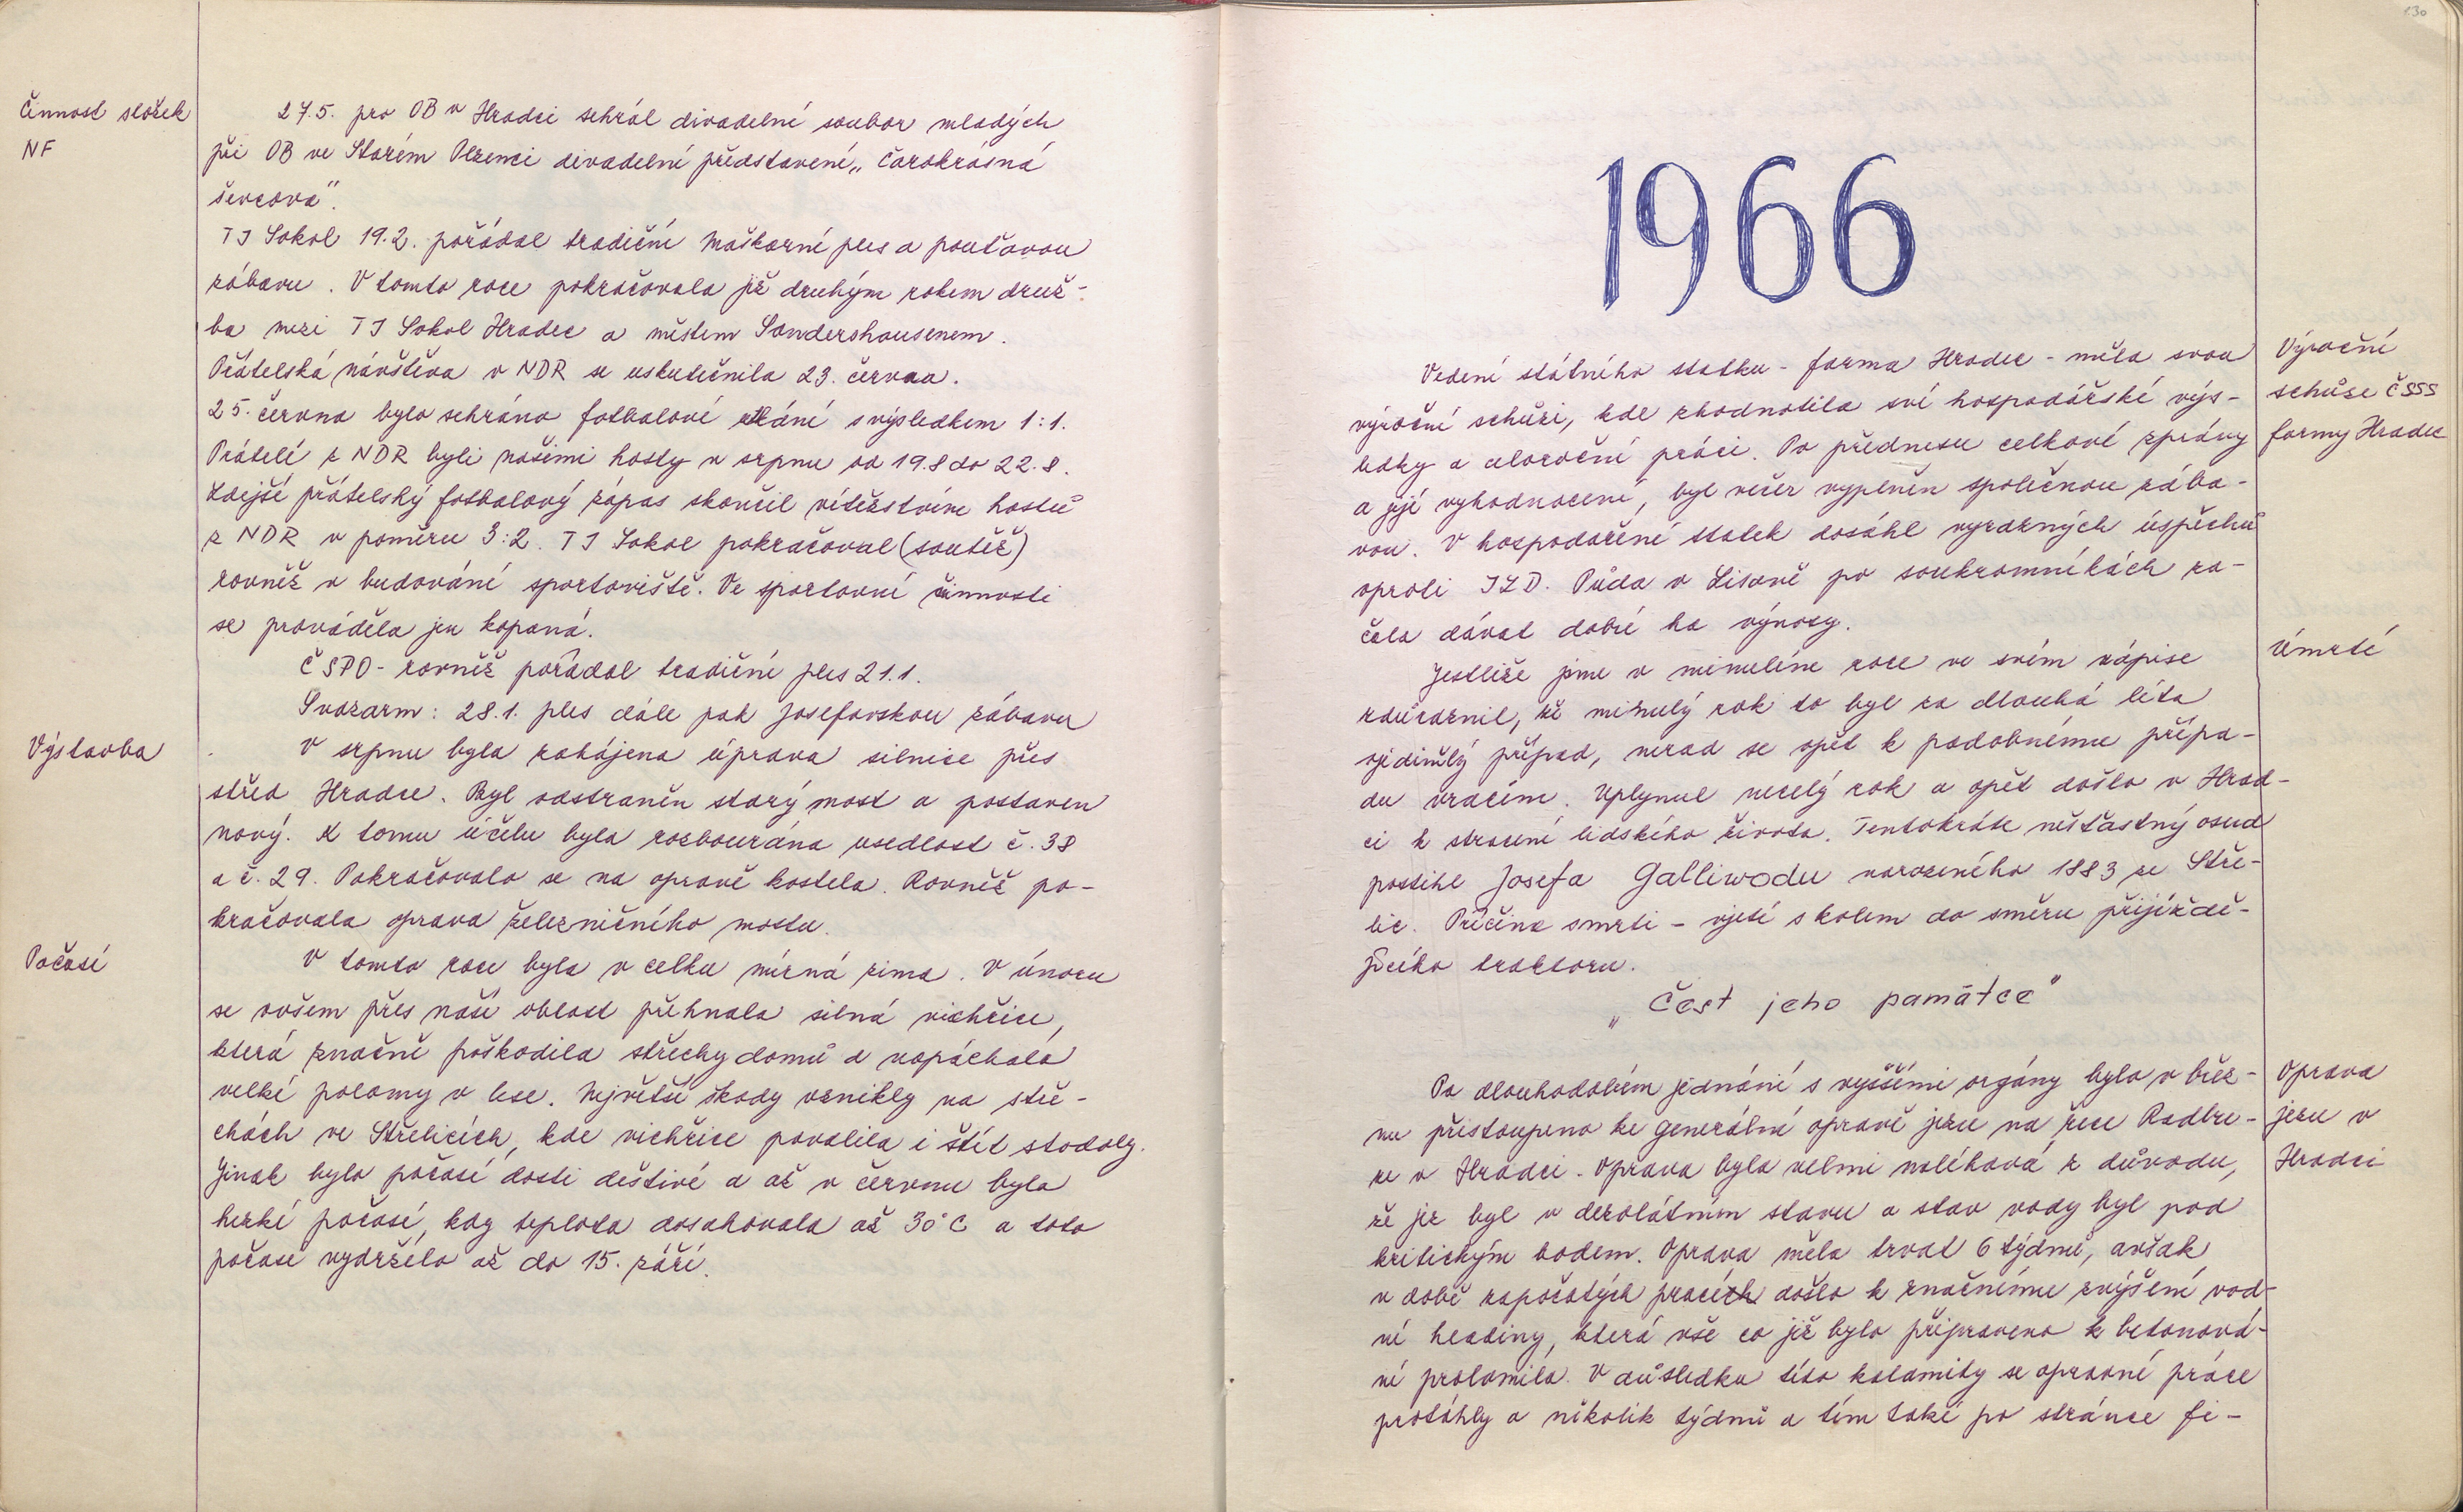 Činnost složek
NF
27.5. pro OB v Hradci sehrál divadelní soubor mladých
při OB ve Starém Plzenci divadelní představení „Čarokrásná
ševcová".
TJ Sokol 19.2. pořádal tradiční Maškarní ples a pouťovou
zábavu. V tomto roce pokračovala již druhým rokem druž-
ba mezi TJ Sokol Hradec a městem Sondershausenem.
Přátelská návštěva v NDR se uskutečnila 23. června.
25. června bylo sehráno fotbalové utkání s výsledkem 1:1.
Přátelé z NDR byli našimi hosty v srpnu od 19.8 do 22.8.
Zdejší přátelský fotbalový zápas skončil vítězstvím hostů
z NDR v poměru 3:2. TJ Sokol pokračoval (soutěž)
rovněž v budování sportoviště. Ve sportovní činnosti
se prováděla jen kopaná.
ČSPO - rovněž pořádal tradiční ples 21.1.
Svazarm: 28.1. ples dále pak Josefovskou zábavu
Výstavba
V srpnu byla zahájena úprava silnice přes
střed Hradce. Byl odstraněn starý most a postaven
nový. K tomu účelu byla rozbourána usedlost č. 38
a č. 29. Pokračovalo se na opravě kostela. Rovněž po-
kračovala oprava železničního mostu.
Počasí
V tomto roce byla v celku mírná zima. V únoru
se ovšem přes naší oblast přehnala silná vichřice,
která značně poškodila střechy domů a napáchala
velké polomy v lese. Největší škody vznikly na stře-
chách ve Střelicích, kde vichřice povalila i štít stodoly.
Jinak bylo počasí dosti deštivé a až v červnu bylo
hezké počasí, kdy teplota dosahovala až 30°C a toto
počasí vydrželo až do 15. září.
130
1966
Výroční
schůze ČSSS
farmy Hradec
Vedení státního statku - farma Hradec - měla svou
výroční schůzi, kde zhodnotila své hospodářské výs-
ledky a celoroční práci. Po přednesu celkové zprávy
a její vyhodnocení, byl večer vyplněn společnou zába-
vou. V hospodaření statek dosáhl výrazných úspěchů
oproti JZD. Půda v Lisově po soukromníkách za-
čala dávat dobré ha výnosy.
Úmrtí
Jestliže jsme v minulém roce ve svém zápise
zdůraznil, že minulý rok to byl za dlouhá léta
ojedinělý případ, nerad se opět k podobnému přípa-
du vracím. Uplynul necelý rok a opět došlo v Hrad-
ci k ztracení lidského života. Tentokráte nešťastný osud
postihl Josefa Galliwodu narozeného 1883 ze Stře-
lic. Příčina smrti - vjetí s kolem do směru přijíždě-
jícího traktoru.
„Čest jeho památce"
Oprava
jezu v
Hradci
Po dlouhodobém jednání s vyššími orgány bylo v břez-
nu přistoupeno ke generální opravě jezu na řece Radbu-
ze v Hradci. Oprava byla velmi naléhavá z důvodu,
že jez byl v dezolátním stavu a stav vody byl pod
kritickým bodem. Oprava měla trvat 6 týdnů, avšak
v době započatých pracích došlo k značnému zvýšení vod-
ní hladiny, která vše co již bylo připraveno k betonová-
ní prolomila. V důsledku této kalamity se opravné práce
protáhly o několik týdnů a tím také po stránce fi-